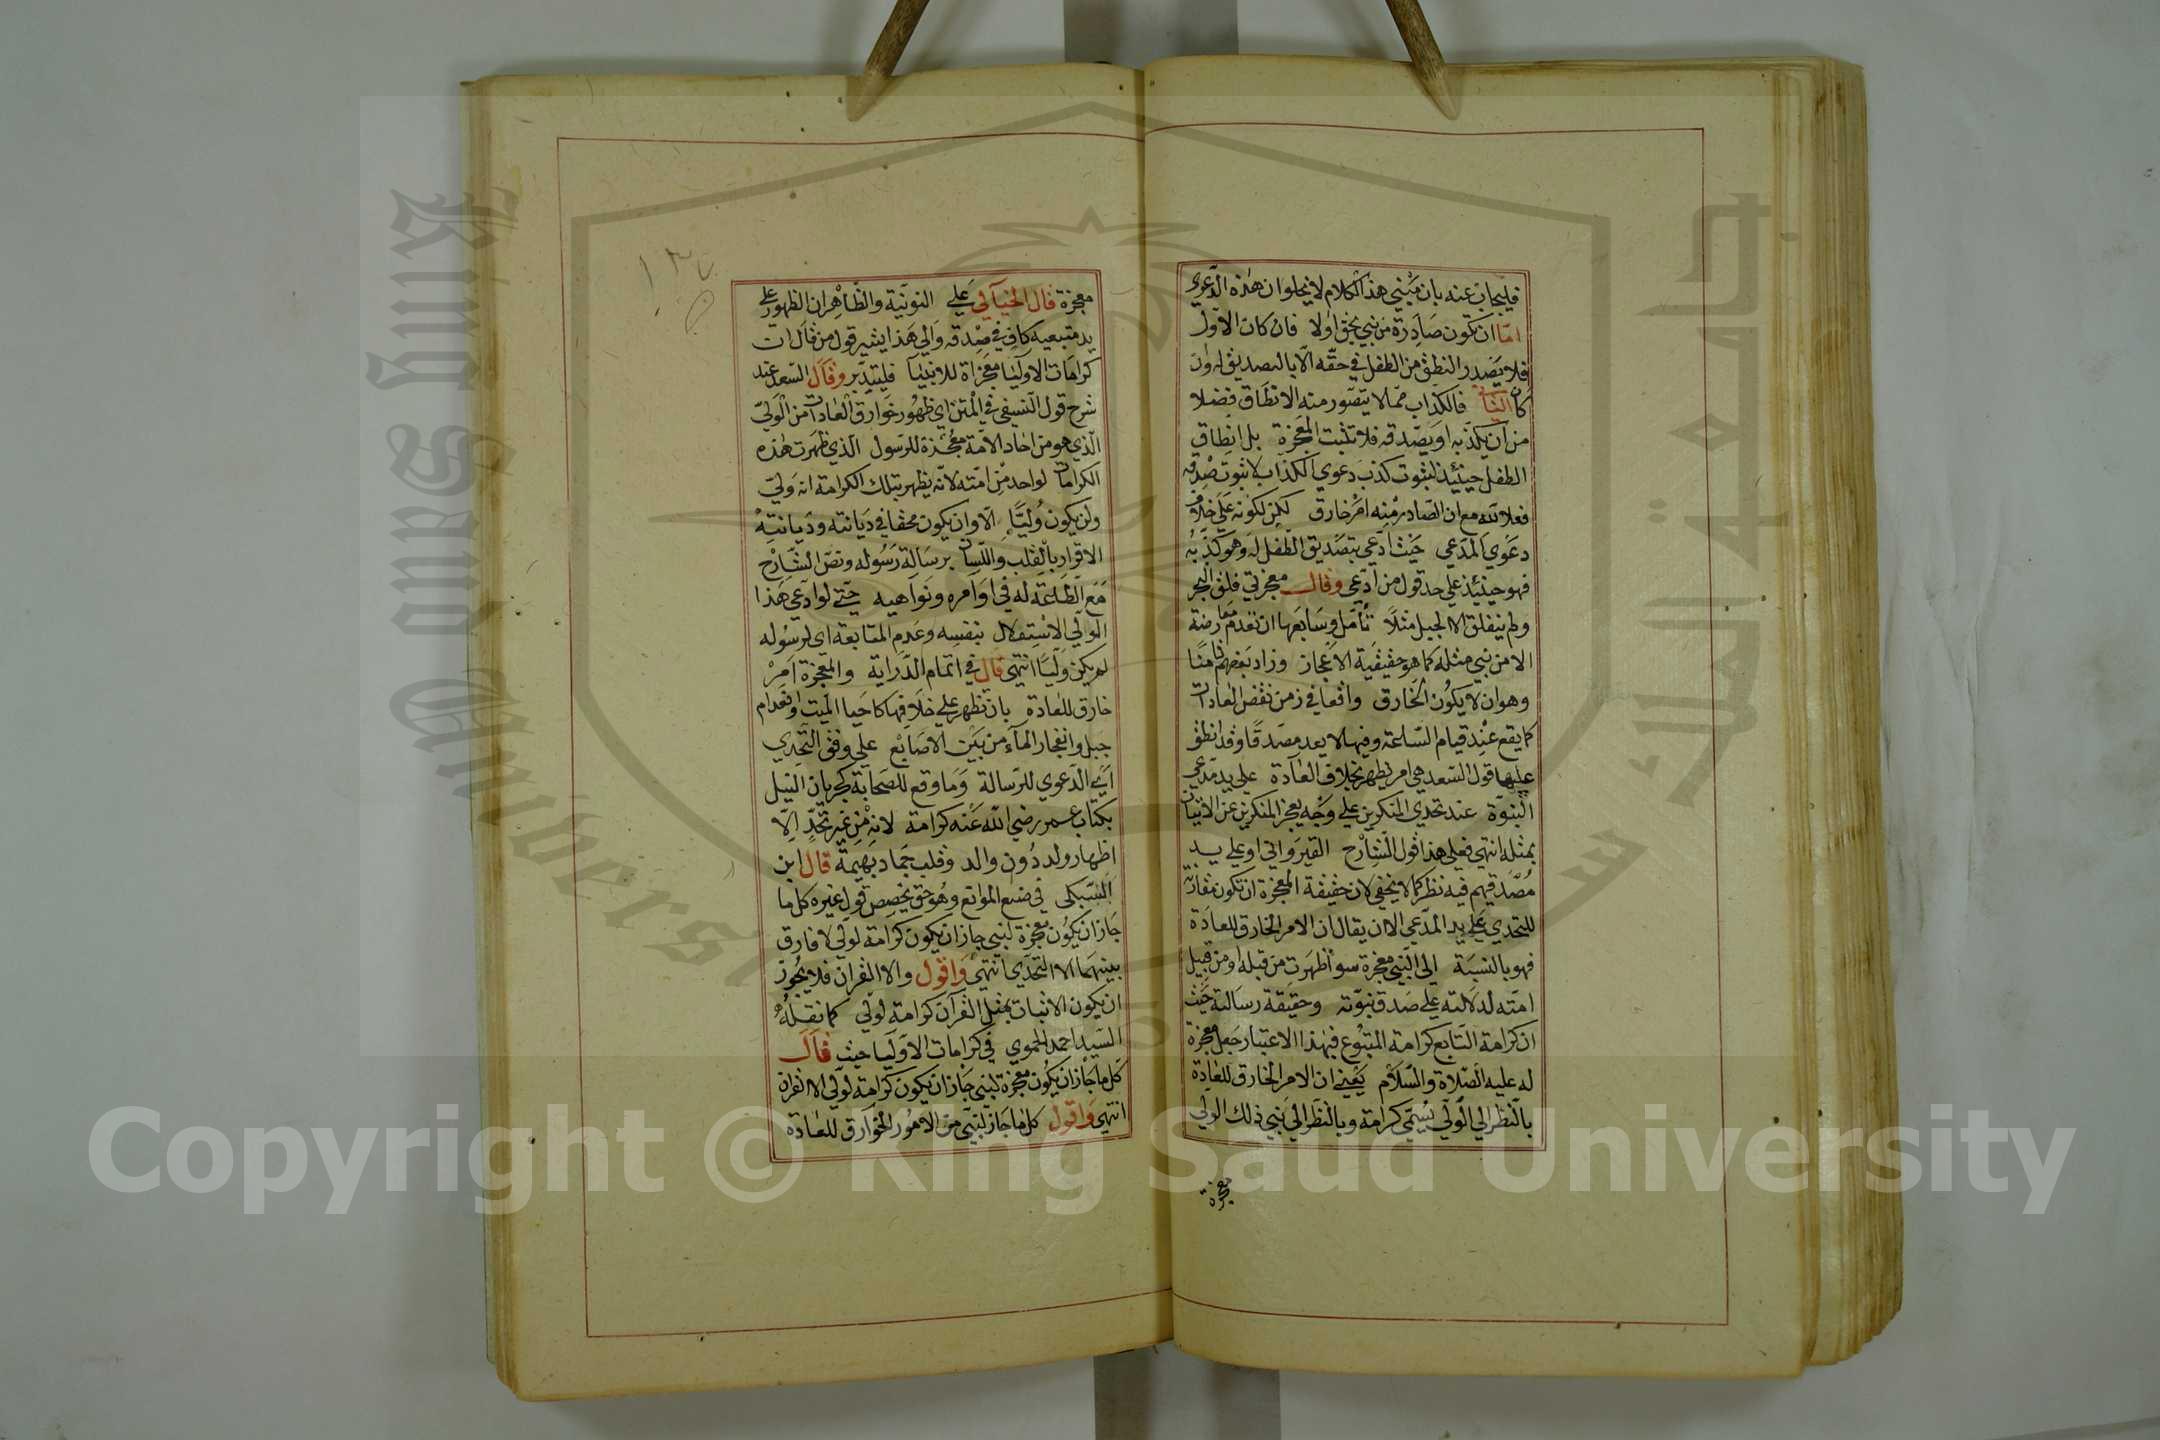 فليجاب عنه بان مبني هذا الكلام لا يخلو ان هذه الدعوي
اما ان تكون صادرة من نبي بحق اولا فان كان الاول
فلا يصدر النطق من الطفل في حقه الا بالتصديق له وان
كان الثاني فالكذاب مما لا يتصور منه الانطاق فضلا
من ان يكذبه او يصدقه فلا تثبت المعجزة بل انطاق
الطفل حينئذ لثبوت كذب دعوي الكذاب لا ثبوت صدقه
فعلا لله مع ان الصادر منه امر خارق لكن لكونه علي خلاف
دعوي المدعي حيث ادعي بتصديق الطفل له وهو كذبه
فهو حينئذ علي حد قول من ادعي وقال معجزتي فلق البحر
ولم ينفلق الا الجبل مثلا تأمل وسابعها ان تعدم معارضة
الا من نبي مثله كما هو حقيقية الاعجاز وزاد بعضهم ثامنا
وهو ان لا يكون الخارق واقعا في زمن نقض العادات
كما يقع عند قيام الساعة وفيها لا يعد مصدقا وقد انطق
عليها قول السعد هي امر يظهر بخلاف العادة علي يد مدعي
النبوة عند تحدي المنكرين علي وجه يعجز المنكرين عن الاتيان
بمثله انتهي فعلي هذا قول الشارح القيرواني او علي يد
مصدقيهم فيه نظر كما لا يخفي لان حقيقة المعجزة ان تكون مقارنة
للتحدي علي يد المدعي الا ان يقال ان الامر الخارق للعادة
فهو بالنسبة الي النبي معجزة سوأ ظهرت من قبله او من قبيل
امته لدلالته علي صدق نبوته وحقيقة رسالته حيث
ان كرامة التابع كرامة المتبوع فبهذا الاعتبار جعل معجزة
له عليه الصلاة والسلام يعني ان الامر الخارق للعادة
بالنظر الي الولي يسمي كرامة وبالنظر الي نبي ذلك الولي
معجزة
معجزة قال الخيالي علي النونية والظاهر ان الظهور علي
يد متبعيه كافي في صدقه والي هذا يشير قول من قال ان
كرامات الاوليا معجزاة للانبيا فليتدبر وقال السعد عند
شرح قول النسفي في المتن اي ظهور خوارق العادات من الولي
الذي هو من احاد الامة معجزة للرسول الذي ظهرت هذه
الكرامات لواحد من امته لانه يظهر بتلك الكرامة انه ولي
ولن يكون وليا الا وان يكون محقا في ديانته وديانته
الاقرار بالقلب واللسان برسالة رسوله ونص الشارح
مع الطاعة له في اوامره ونواهيه حتي لو ادعي هذا
الولي الاستقلال بنفسه وعدم المتابعة اي لرسوله
لم يكن وليا انتهي قال في اتمام الدراية والمعجزة امر
خارق للعادة بان تظهر علي خلافها كاحيا الميت وانعدام
جبل وانفجار الماء من بين الاصابع علي وفق التحدي
اي الدعوي للرسالة وما وقع للصحابة كجريان النيل
بكتاب عمر رضي الله عنه كرامة لانه من غير تحد الا
اظهار ولد دون والد وقلب جماد بهيمة قال ابن
السبكي في منع الموانع وهو حق يخصص قول غيره كل ما
جاز ان يكون معجزة لنبي جاز ان يكون كرامة لولي لا فارق
بينهما الا التحدي انتهي واقول والا القران فلا يجوز
ان يكون الاتيان بمثل القران كرامة لولي كما نقله
السيد احمد الحموي في كرامات الاوليا حيث قال
كل ما جاز ان يكون معجزة لنبي جاز ان يكون كرامة لولي الا القراة
انتهي واقول كل ما جاز لنبي من الامور الخوارق للعادة
King Saud University
Copyright © King Saud University